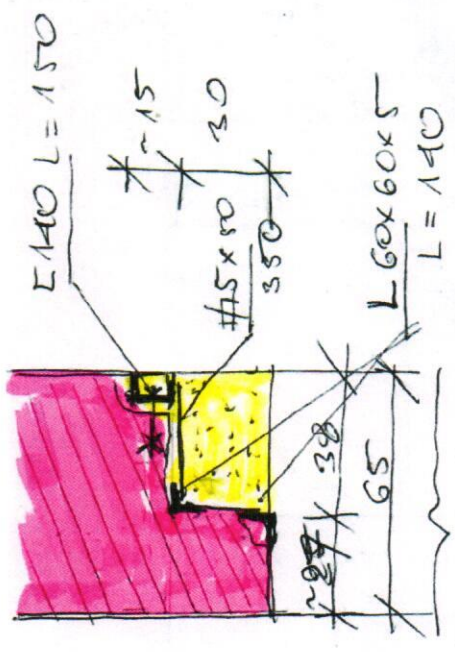 [140 L=150
~15
30
#5x50
350
L60x60x5
L=140
~27
38
65